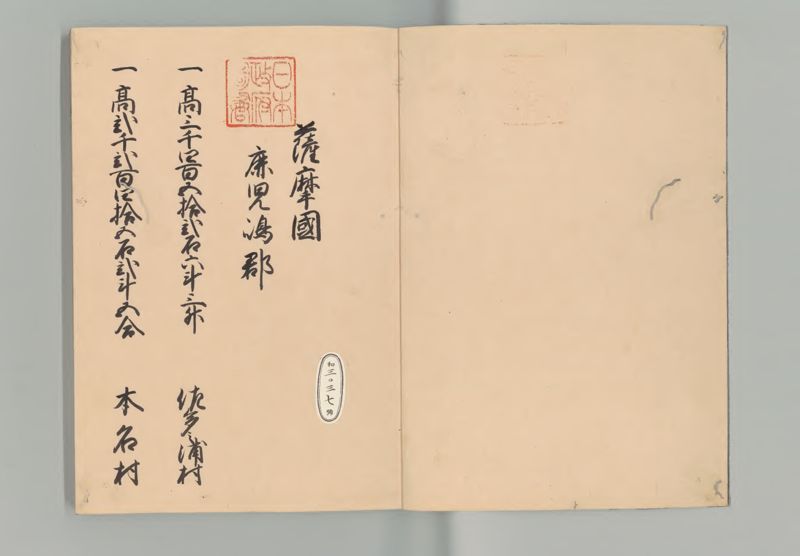 和三〇三七號
日本
政府
圖書
薩摩國
鹿児嶋郡
一高三千四百五拾弐石六斗三升 佐多之浦村
一高弐千弐百四拾五石弐斗五合 本名村